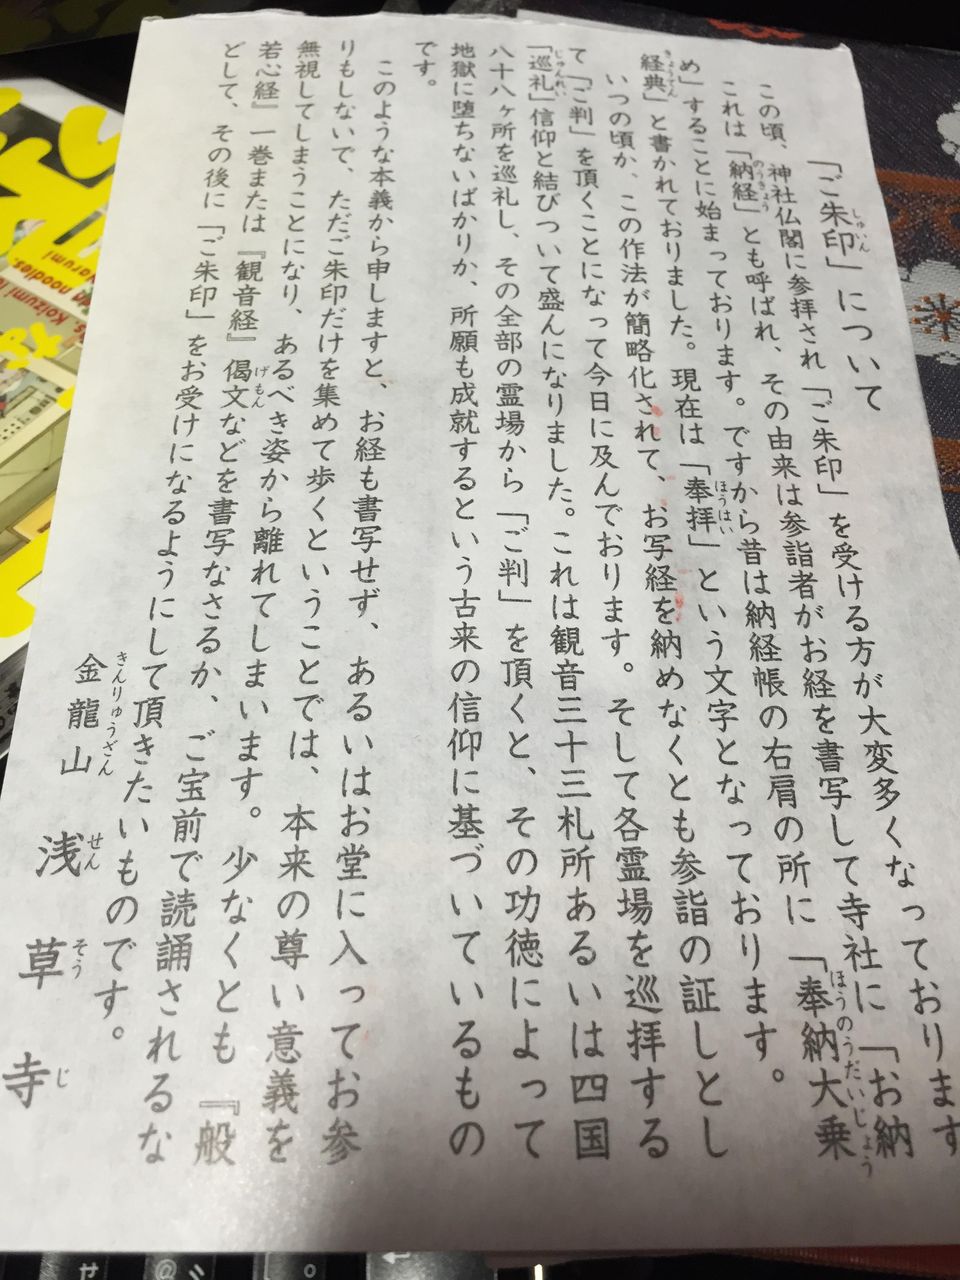 「ご朱印」について
しゅいん
この頃、神社仏閣に参拝され「ご朱印」を受ける方が大変多くなっております
これは「納経」とも呼ばれ、その由来は参詣者がお経を書写して寺社に「お納
のうきょう
め」することに始まっております。ですから昔は納経帳の右肩の所に「奉納大乗
ほうのうだいじょう
経典」と書かれておりました。現在は「奉拝」という文字となっております。
きょうてん
ほうはい
いつの頃か、この作法が簡略化されて、お写経を納めなくとも参詣の証しとし
て「ご判」を頂くことになって今日に及んでおります。そして各霊場を巡拝する
「巡礼」信仰と結びついて盛んになりました。これは観音三十三札所あるいは四国
じゅんれい
八十八ヶ所を巡礼し、その全部の霊場から「ご判」を頂くと、その功徳によって
地獄に堕ちないばかりか、所願も成就するという古来の信仰に基づいているもの
です。
このような本義から申しますと、お経も書写せず、あるいはお堂に入ってお参
りもしないで、ただご朱印だけを集めて歩くということでは、本来の尊い意義を
無視してしまうことになり、あるべき姿から離れてしまいます。少なくとも『般
若心経』一巻または『観音経』偈文などを書写なさるか、ご宝前で読誦されるな
げもん
どして、その後に「ご朱印」をお受けになるようにして頂きたいものです。
金龍山 浅草寺
きんりゅうざん せんそうじ
Koizumi
noodles.
せ
@
ミ
。